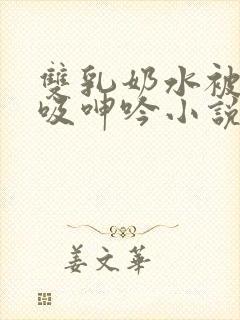 雙乳奶水被
吸呻吟小說
姜文華